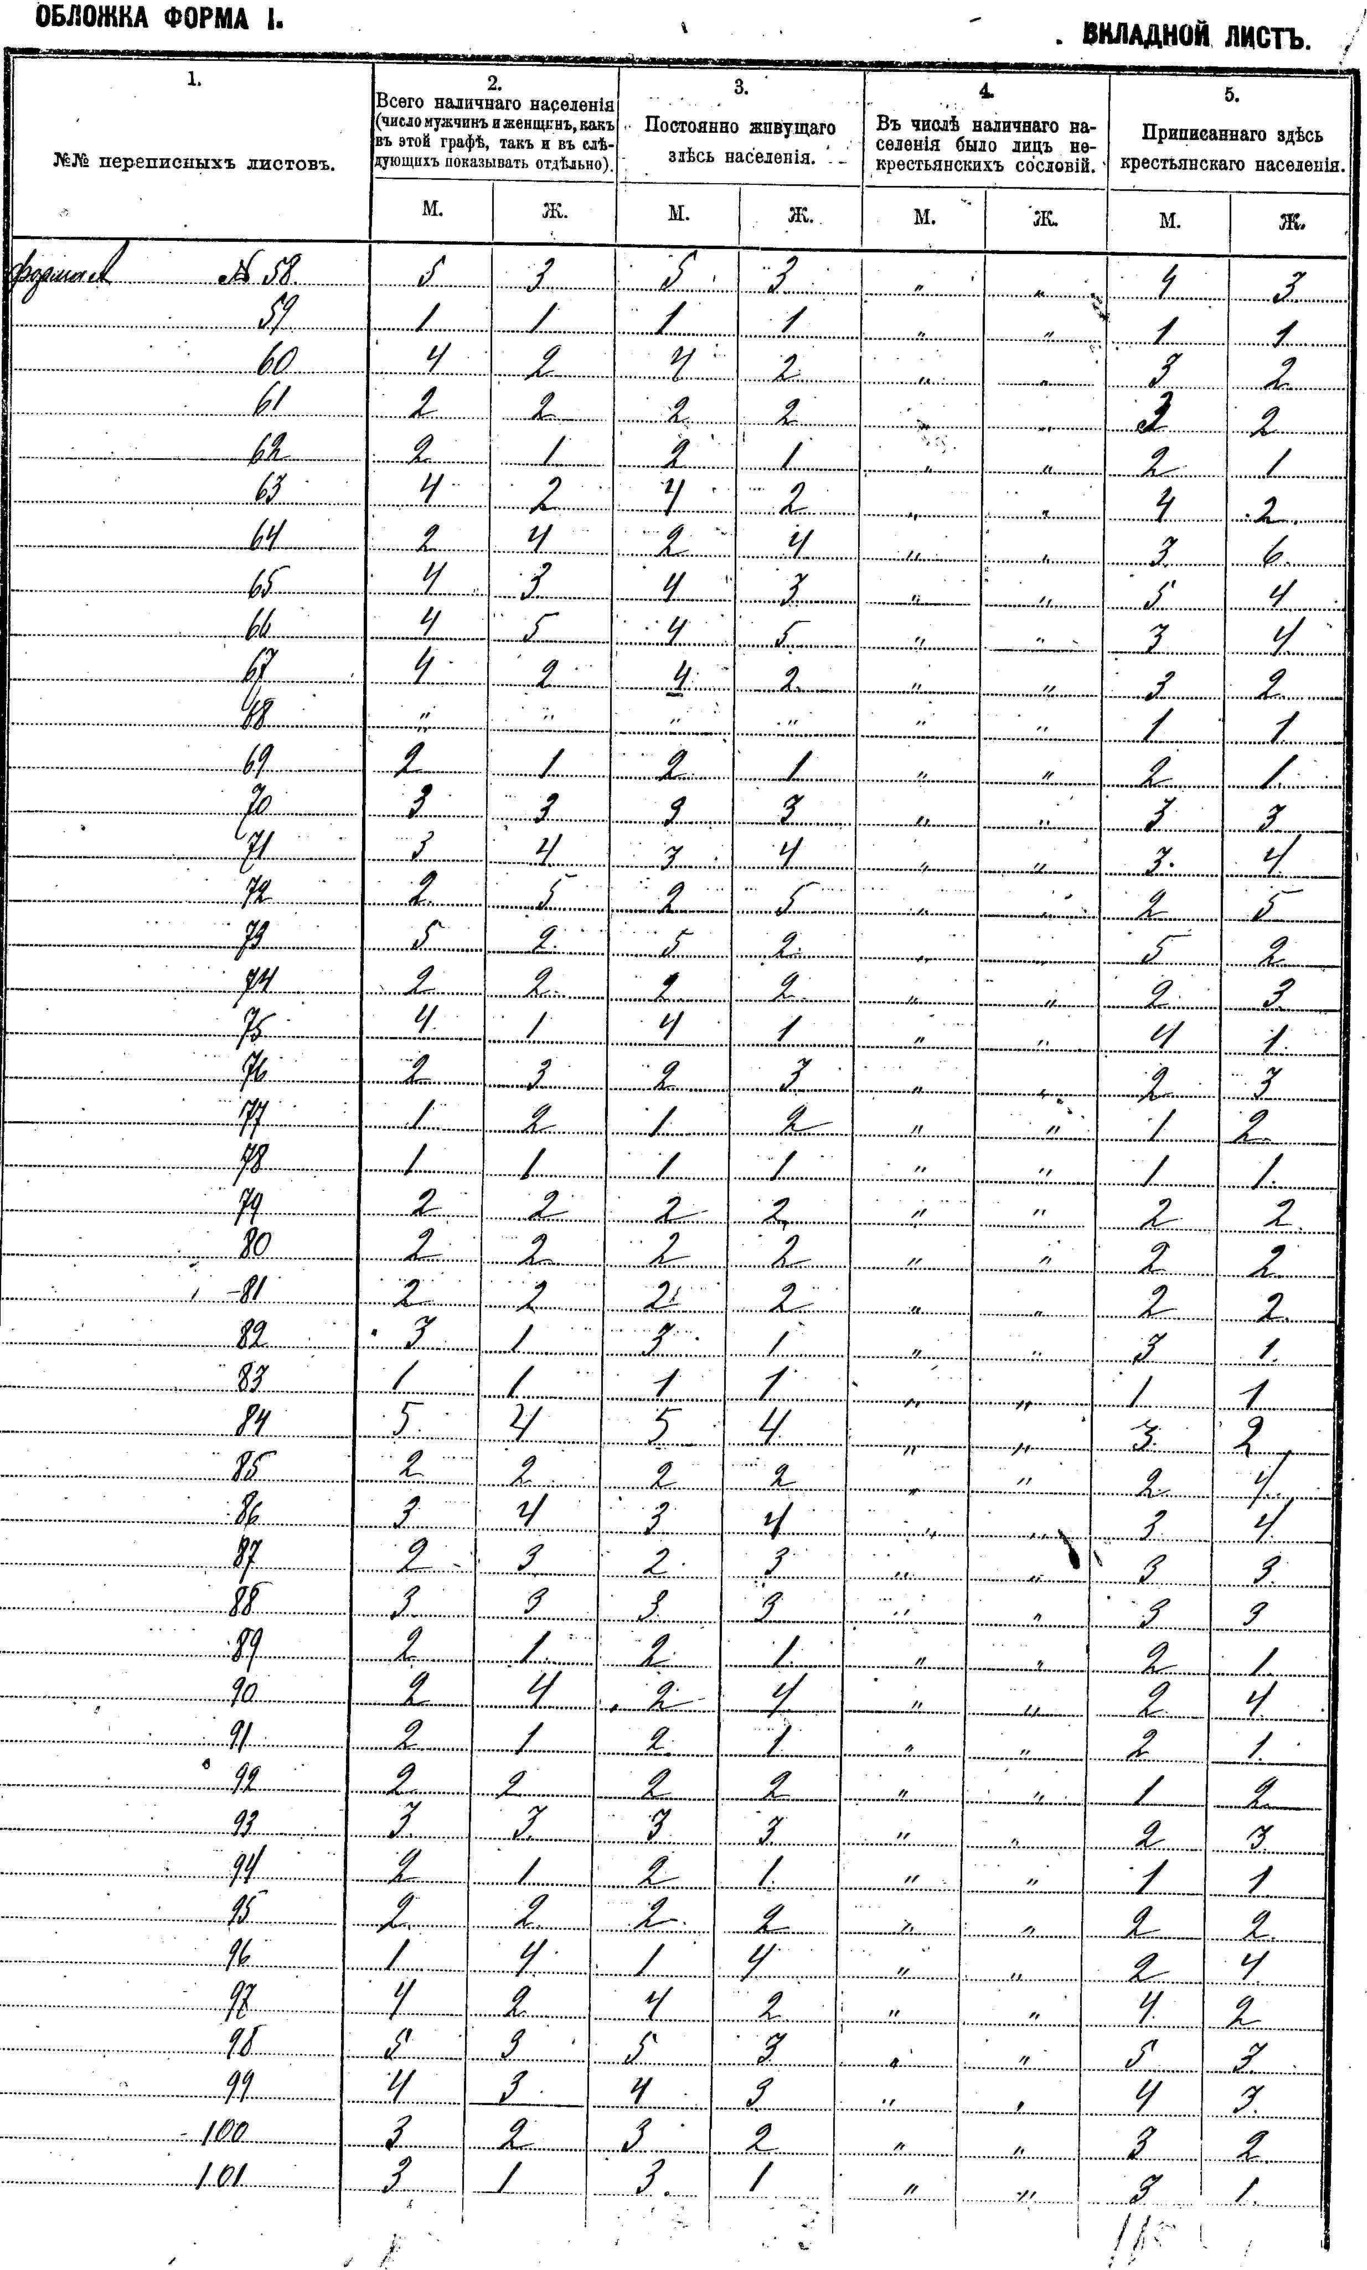 ОБЛОЖКА ФОРМА I.
ВКЛАДНОЙ ЛИСТЪ.
1. 2. 3. 4. 5.
№№ переписныхъ листовъ.
Всего наличнаго населенія
(число мужчинъ и женщинъ, какъ
въ этой графѣ, такъ и въ слѣ-
дующихъ показывать отдѣльно).
Постоянно живущаго
здѣсь населенія.
Въ числѣ наличнаго на-
селенія было лицъ не-
крестьянскихъ сословій.
Приписаннаго здѣсь
крестьянскаго населенія.
М. Ж. М. Ж. М. Ж. М. Ж.
форма А № 58. 5 3 5 3 " " 4 3
59 1 1 1 1 " " 1 1
60 4 2 4 2 " " 3 2
61 2 2 2 2 " " 2
62 2 1 2 1 " " 2 1
63 4 2 4 2 " " 4 2
64 2 4 2 4 " " 3 6
65 4 3 4 3 " " 5 4
66 4 5 4 5 " " 3 4
67 4 2 4 2 " " 3 2
68 " " " " " " 1 1
69 2 1 2 1 " " 2 1
70 3 3 3 3 " " 3 3
71 3 4 3 4 " " 3 4
72 2 5 2 5 " " 2 5
73 5 2 5 2 " " 5 2
74 2 2 2 2 " " 2 3
75 4 1 4 1 " " 4 1
76 2 3 2 3 " " 2 3
77 1 2 1 2 " " 1 2
78 1 1 1 1 " " 1 1
79 2 2 2 2 " " 2 2
80 2 2 2 2 " " 2 2
81 2 2 2 2 " " 2 2
82 3 1 3 1 " " 3 1
83 1 1 1 1 " " 1 1
84 5 4 5 4 " " 3 2
85 2 2 2 2 " " 2 4
86 3 4 3 4 " " 3 4
87 2 3 2 3 " " 3 3
88 3 3 3 3 " " 3 3
89 2 1 2 1 " " 2 1
90 2 4 2 4 " " 2 4
91 2 1 2 1 " " 2 1
92 2 2 2 2 " " 1 2
93 3 3 3 3 " " 2 3
94 2 1 2 1 " " 1 1
95 2 2 2 2 " " 2 2
96 1 4 1 4 " " 2 4
97 4 2 4 2 " " 4 2
98 5 3 5 3 " " 5 3
99 4 3 4 3 " " 4 3
100 3 2 3 2 " " 3 2
101 3 1 3 1 " " 3 1